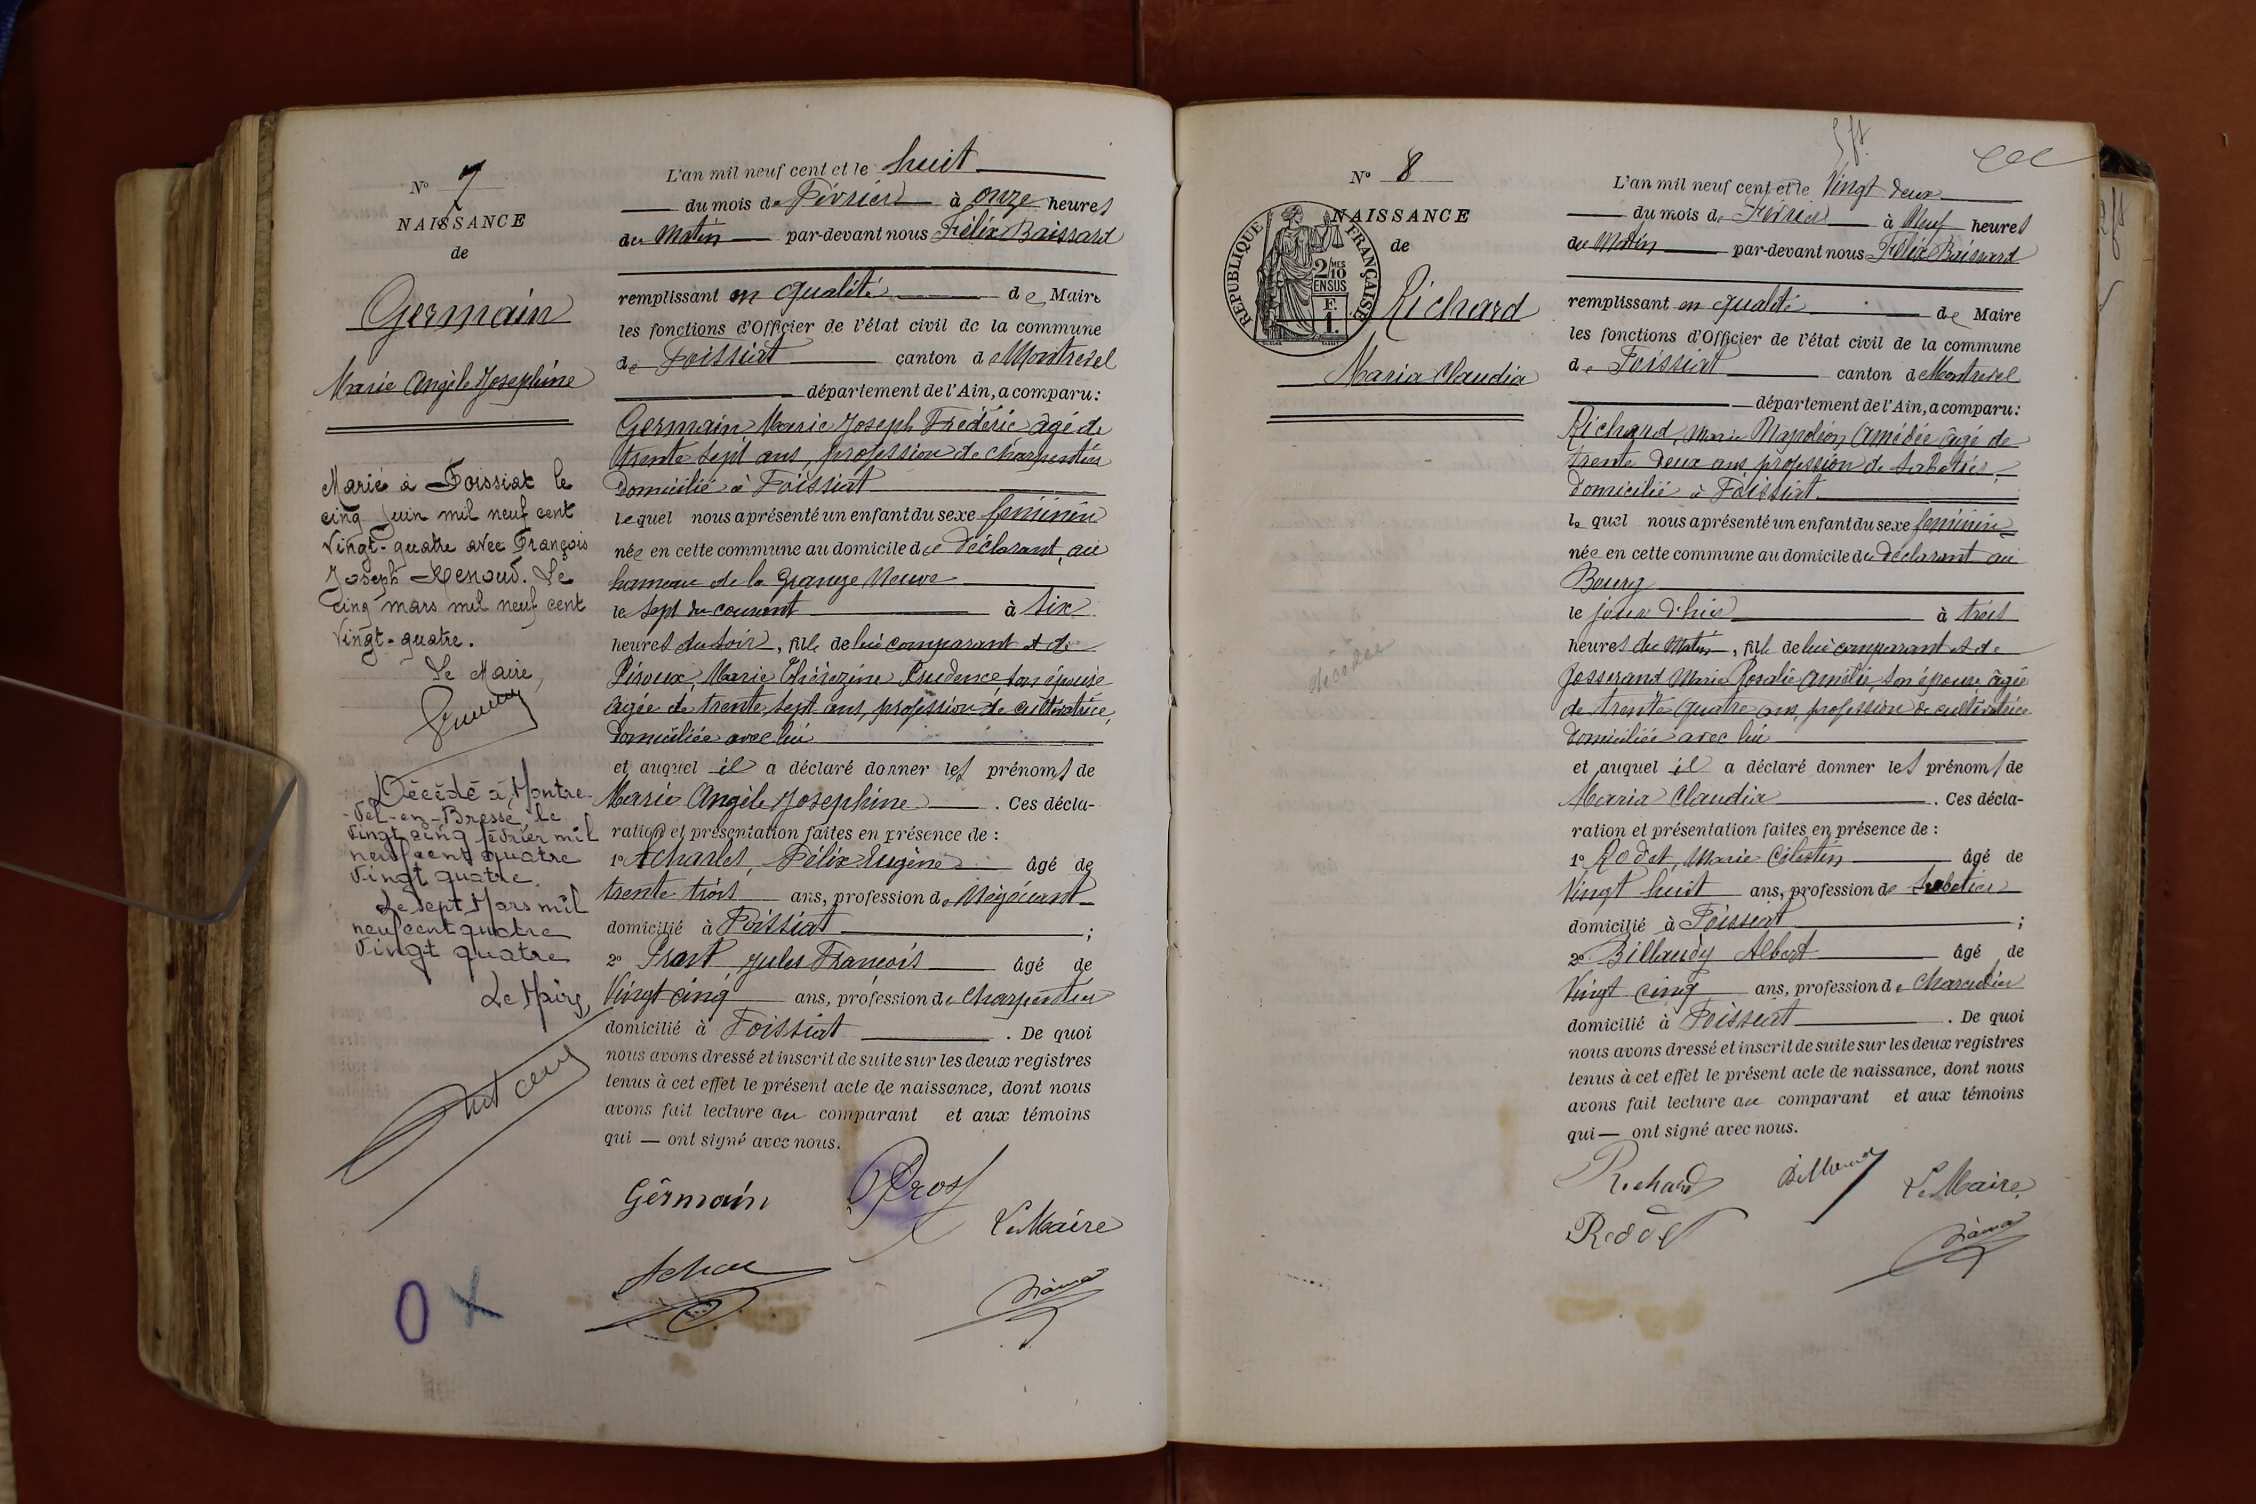 N° 7
NAISSANCE
de
Germain
Marie Angèle Josephine
Marié à Foissiat le
cinq Juin mil neuf cent
vingt-quatre avec François
Joseph Renoud. Le
cinq mars mil neuf cent
vingt-quatre.
Le Maire,
Décédé à Montre-
-vel-en-Bresse, le
vingt cinq février mil
neuf cent quatre
vingt quatre.
Le sept Mars mil
neuf cent quatre
vingt quatre
Le Maire,
L'an mil neuf cent et le huit
du mois de Février à onze heures
du Matin par-devant nous Félix Baissard
remplissant en qualité de Maire
les fonctions d'Officier de l'état civil de la commune
de Foissiat canton de Montrevel
département de l'Ain, a comparu:
Germain Marie Joseph Frédéric âgé de
trente sept ans, profession de charpentier
domicilié à Foissiat
lequel nous a présenté un enfant du sexe féminin
née en cette commune au domicile du déclarant, au
hameau de la Grange Neuve
le sept du courant à six
heures du soir, fille de lui comparant et de
Pisoux, Marie Thérézine Prudence son épouse
âgée de trente sept ans, profession de cultivatrice,
domiciliée avec lui
et auquel il a déclaré donner les prénoms de
Marie Angèle Josephine. Ces décla-
ration et présentation faites en présence de :
1° Acharles, Félix Eugène âgé de
trente trois ans, profession de Négociant
domicilié à Foissiat ;
2° Prost Jules François âgé de
Vingt cinq ans, profession de Charpentier
domicilié à Foissiat . De quoi
nous avons dressé et inscrit de suite sur les deux registres
tenus à cet effet le présent acte de naissance, dont nous
avons fait lecture au comparant et aux témoins
qui — ont signé avec nous.
Germain Prost
Le Maire
N° 8
NAISSANCE
de
RÉPUBLIQUE FRANÇAISE
2/10 MES
EN SUS
F.
1.
Richard
Maria Claudia
décédée
L'an mil neuf cent et le Vingt deux
du mois de Février à Neuf heures
du Matin par-devant nous Félix Baissard
remplissant en qualité de Maire
les fonctions d'Officier de l'état civil de la commune
de Foissiat canton de Montrevel
département de l'Ain, a comparu:
Richard, Marie Napoléon Amédée âgé de
trente deux ans, profession de sabotier,
domicilié à Foissiat
lequel nous a présenté un enfant du sexe féminin
née en cette commune au domicile du déclarant au
Bourg
le jour d'hier à trois
heures du Matin, fille de lui comparant et de
Josserand Marie Rosalie Amélie, son épouse âgée
de trente quatre ans, profession de cultivatrice
domiciliée avec lui
et auquel il a déclaré donner les prénoms de
Maria Claudia . Ces décla-
ration et présentation faites en présence de :
1° Rodet, Marie Célestin âgé de
Vingt huit ans, profession de Sabotier
domicilié à Foissiat ;
2° Billaudy Albert âgé de
Vingt cinq ans, profession de Charcutier
domicilié à Foissiat . De quoi
nous avons dressé et inscrit de suite sur les deux registres
tenus à cet effet le présent acte de naissance, dont nous
avons fait lecture au comparant et aux témoins
qui — ont signé avec nous.
Richard Le Maire
Rodet